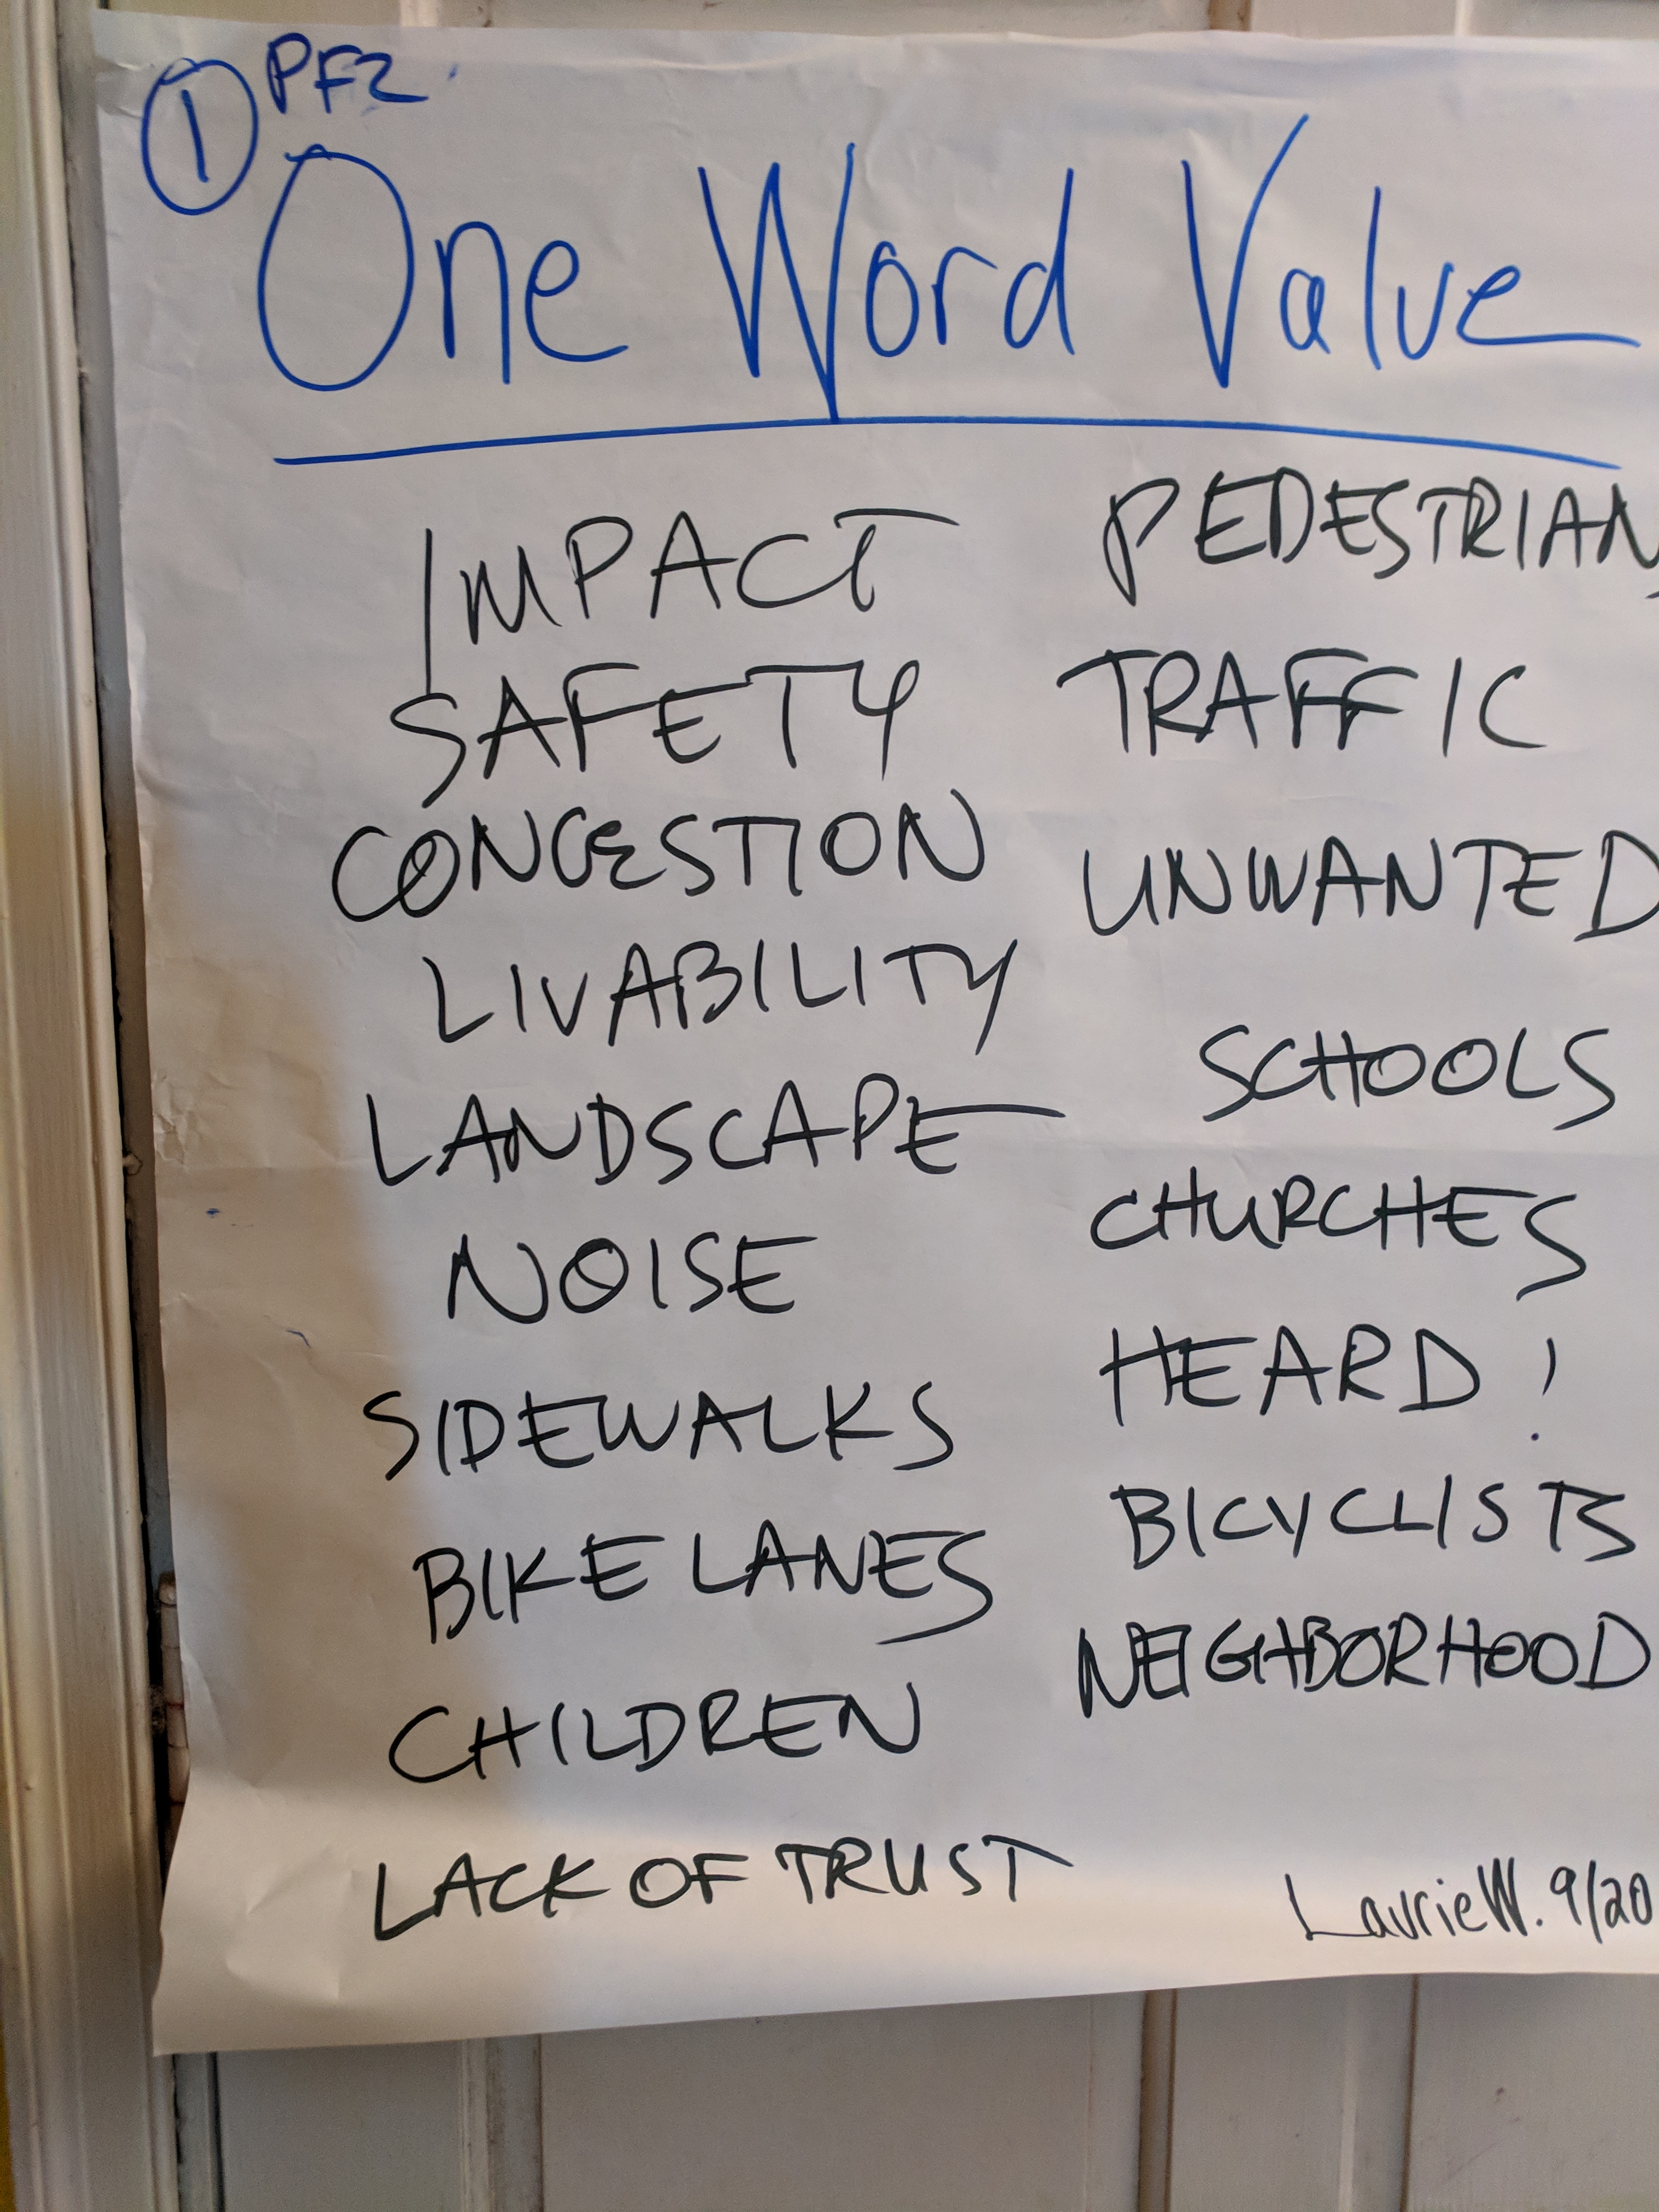 ① PF2
One Word Value
IMPACT
SAFETY
CONGESTION
LIVABILITY
LANDSCAPE
NOISE
SIDEWALKS
BIKE LANES
CHILDREN
LACK OF TRUST
PEDESTRIANS
TRAFFIC
UNWANTED
SCHOOLS
CHURCHES
HEARD!
BICYCLISTS
NEIGHBORHOOD
Laurie W. 9/20